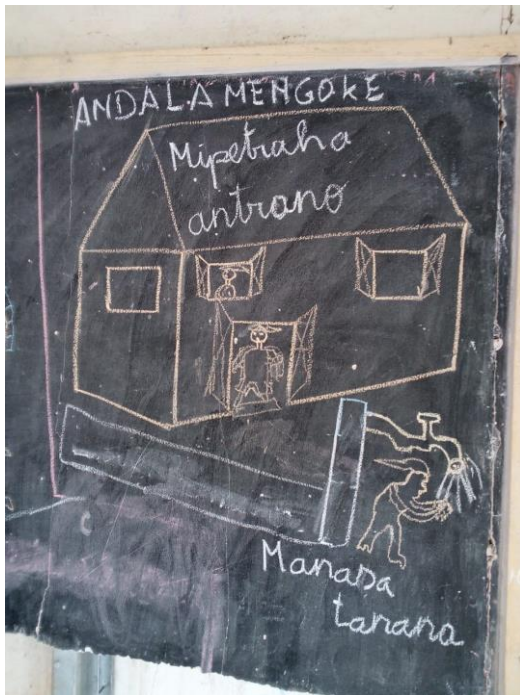 ANDALAMENGOKE
Mipetraha
antrano
Manasa
tanana